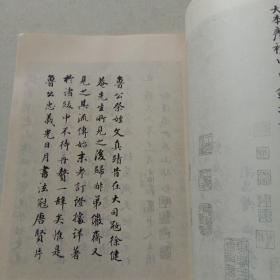 魯公祭姪文真蹟昔在大司寇徐健
菴先生所見之後歸弟儼齋又
見之其流傳始末考訂證據詳著
於諸跋中不待再贅一辭矣惟是
魯公忠義光日月書法冠唐賢片